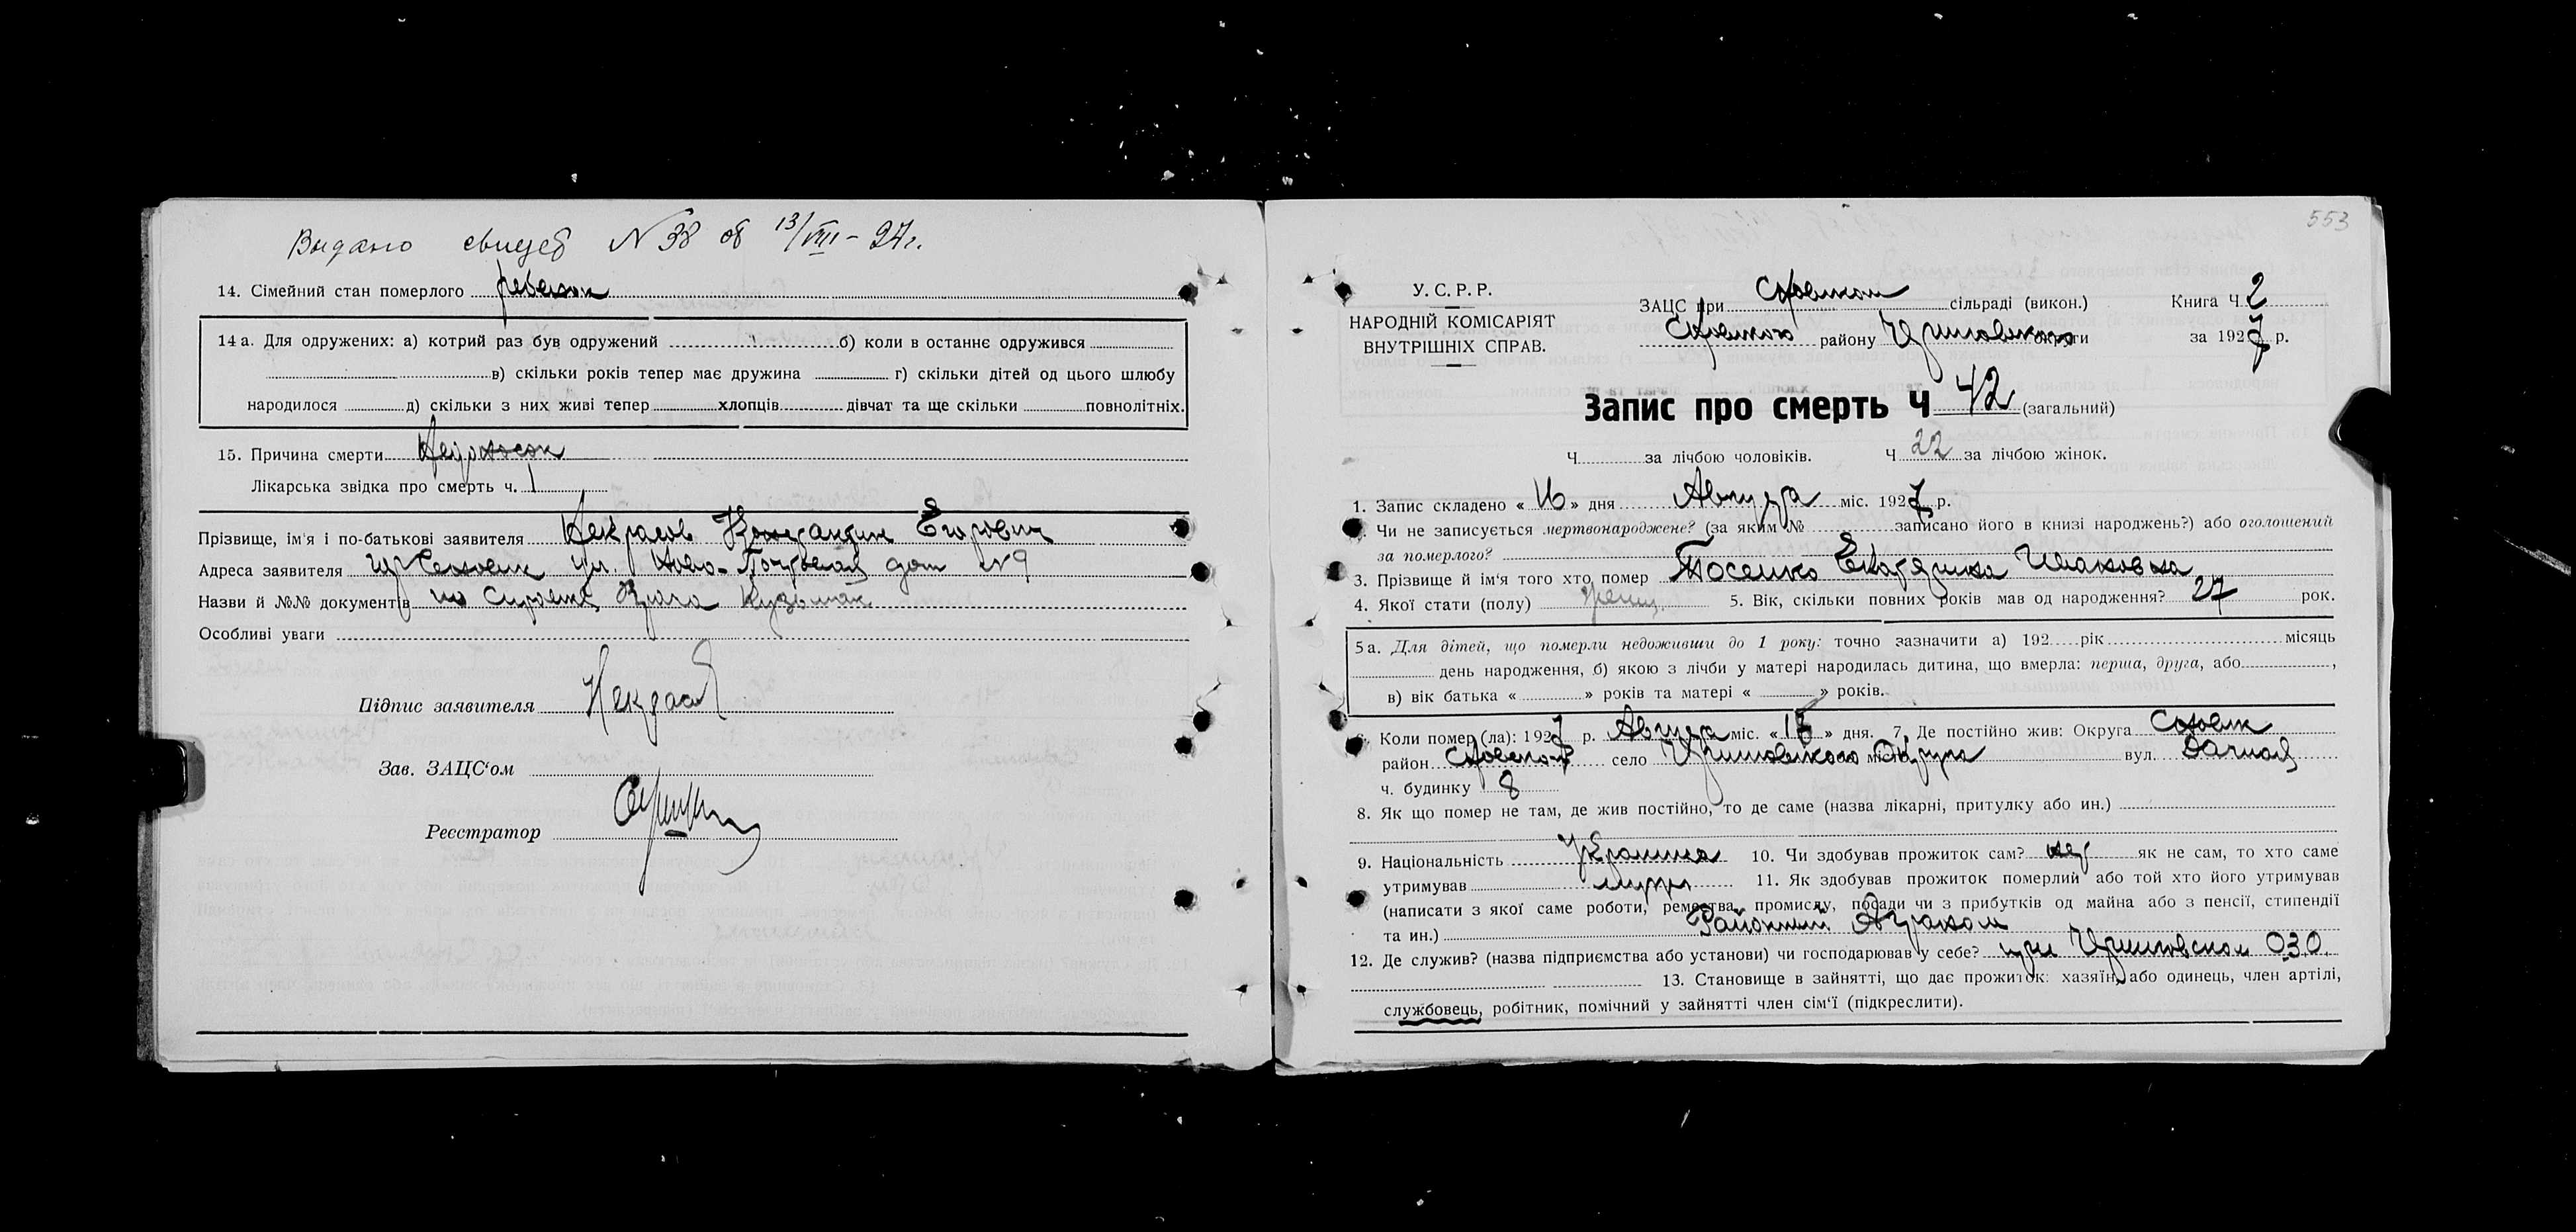 Видано свидет №38 от 13/VIII-27г.
14. Сімейний стан померлого ребенок
14а. Для одружених: а) котрий раз був одружений б) коли в останнє одружився
в) скільки років тепер має дружина г) скільки дітей од цього шлюбу
народилося д) скільки з них живі тепер хлопців дівчат та ще скільки повнолітніх.
15. Причина смерти Недоносок
Лікарська звідка про смерть ч. 1
Прізвище, ім'я і по-батькові заявителя Некрасов Константин Егорович
Адреса заявителя ул. Ново- дом №9
Назви й №№ документів по справке Врача
Особливі уваги
Підпис заявителя Некрасов
Зав. ЗАЦС'ом
Реєстратор
553
У. С. Р. Р.
НАРОДНІЙ КОМІСАРІЯТ
ВНУТРІШНІХ СПРАВ.
ЗАЦС при сільраді (викон.) Книга Ч 2
району округи за 1927 р.
Запис про смерть Ч 42 (загальний)
Ч за лічбою чоловіків. Ч 22 за лічбою жінок.
1. Запис складено « 16 » дня Августа міс. 1927 р.
Чи не записується мертвонароджене? (за яким № записано його в книзі народжень?) або оголошений
за померлого?
3. Прізвище й ім'я того хто помер Тосенко Екатерина Ивановна
4. Якої стати (полу) женщ. 5. Вік, скільки повних років мав од народження? 27 рок.
5а. Для дітей, що померли недоживши до 1 року: точно зазначити а) 192 рік місяць
день народження, б) якою з лічби у матері народилась дитина, що вмерла: перша, друга, або ,
в) вік батька « » років та матері « » років.
Коли помер (ла): 1927 р. Августа міс. « » дня. 7. Де постійно жив: Округа
район село місто Округа вул. Дачная
ч. будинку 8
8. Як що помер не там, де жив постійно, то де саме (назва лікарні, притулку або ин.)
9. Національність Украинка 10. Чи здобував прожиток сам? нет як не сам, то хто саме
утримував муж 11. Як здобував прожиток померлий або той хто його утримував
(написати з якої саме роботи, ремества, промислу, посади чи з прибутків од майна або з пенсії, стипендії
та ин.) Районный Агроном
12. Де служив? (назва підприємства або установи) чи господарював у себе? при О.З.О.
13. Становище в зайнятті, що дає прожиток: хазяїн, або одинець, член артілі,
службовець, робітник, помічний у зайнятті член сім'ї (підкреслити).